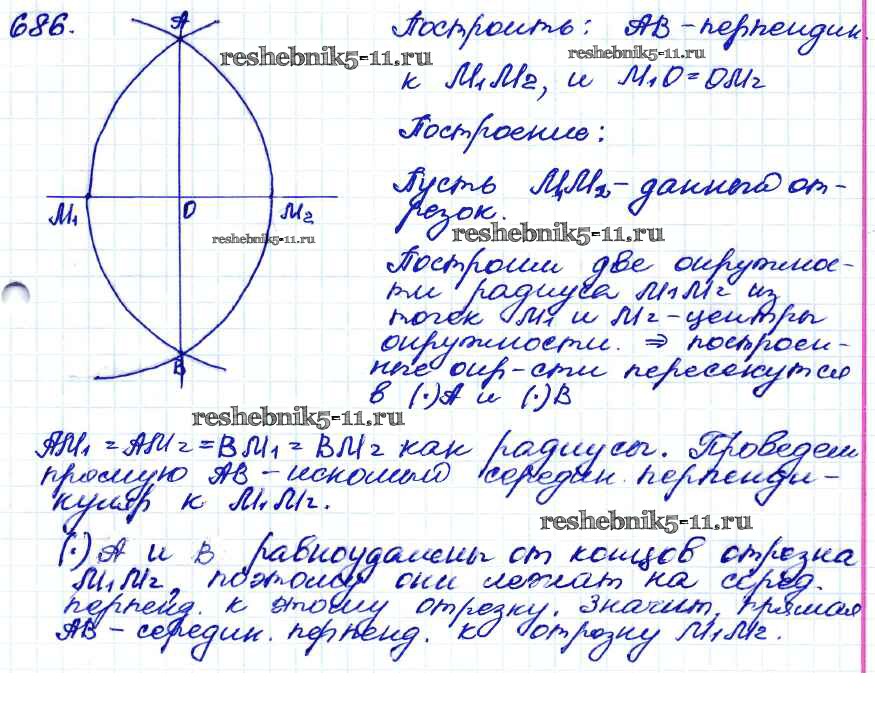 686.
A
Построить: AB-перпендик.
reshebnik5-11.ru
reshebnik5-11.ru
к M₁M₂, и M₁O=OM₂
Построение:
Пусть M₁M₂-данный от-
резок.
M₁
O
M₂
reshebnik5-11.ru
reshebnik5-11.ru
Построим две окружнос-
ти радиуса M₁M₂ из
точек M₁ и M₂-центры
окружности. ⇒ построен-
ные окр-сти пересекутся
B
в (·)A и (·)B
reshebnik5-11.ru
AM₁=AM₂=BM₁=BM₂ как радиусы. Проведем
прямую AB-искомый середин. перпенди-
куляр к M₁M₂.
reshebnik5-11.ru
(·) A и B равноудалены от концов отрезка
M₁M₂, поэтому они лежат на серед.
перпенд. к этому отрезку. Значит, прямая
AB-середин. перпенд. к отрезку M₁M₂.